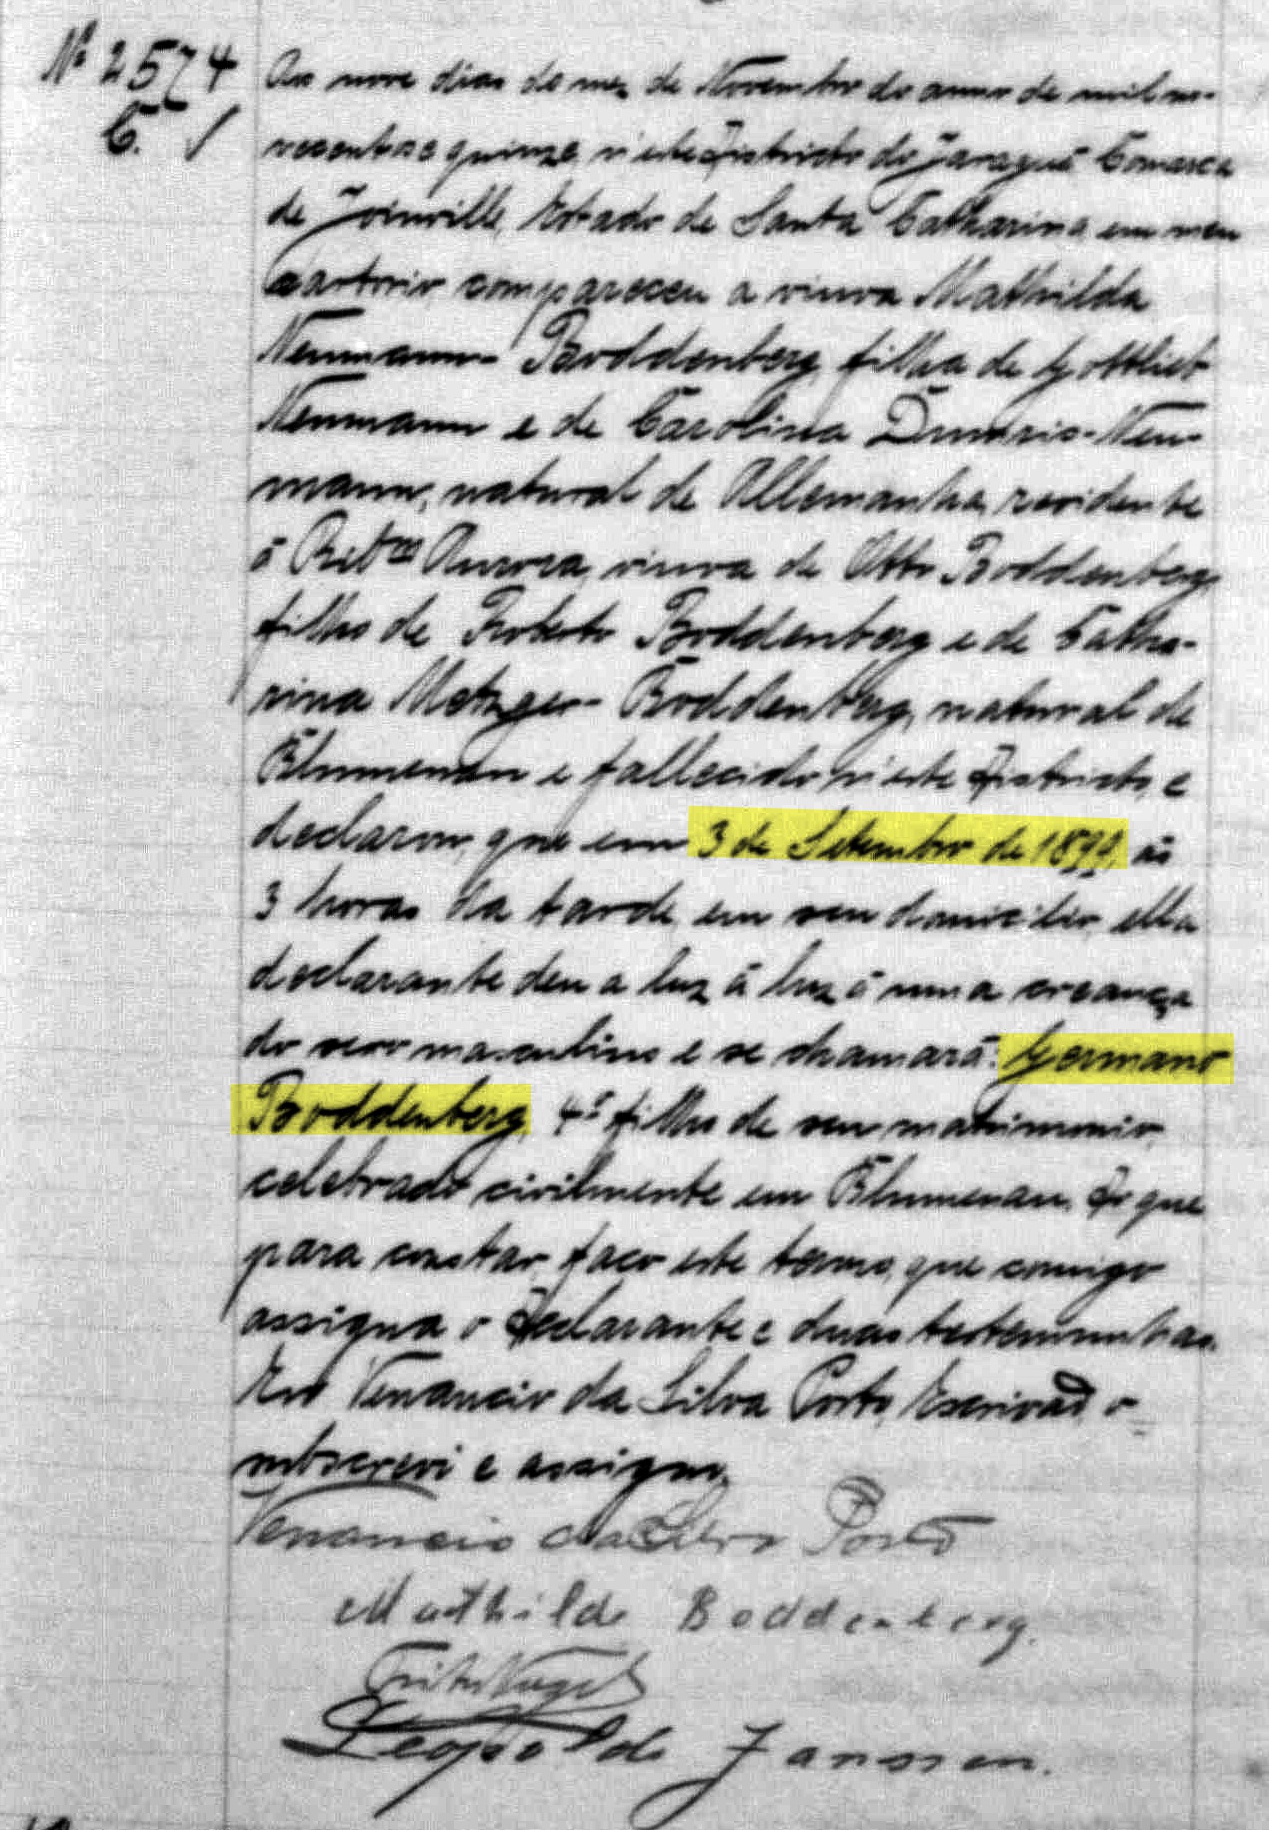 Nº 2574
Aos nove dias do mez de Novembro do anno de mil no-
vecentos e quinze, n'este Districto do Jaraguá Comarca
de Joinville, Estado de Santa Catharina, em meu
cartorio compareceu a viuva Mathilda
Neumann-Boddenberg, filha de Gottlieb
Neumann e de Carolina -Neu-
mann, natural de Allemanha, residente
á Aurora, viuva de Otto Boddenberg,
filho de Roberto Boddenberg e de Catha-
rina Metzger-Boddenberg, natural de
Blumenau e fallecido n'este Districto, e
declarou, que em 3 de Setembro de 1899, ás
3 horas da tarde, em seu domicilio, ella
declarante deu a luz á luz á uma creança
do sexo masculino e se chamará: Germano
Boddenberg, 4º filho de seu matrimonio,
celebrado civilmente em Blumenau. Do que
para constar, faço este termo, que comigo
assigna o Declarante e duas testemunhas.
Eu Venancio da Silva Porto, Escrivão o
subscrevi e assigno.
Venancio da Silva Porto
Mathilde Boddenberg.
Fritz Vogel
Leopoldo Janssen.